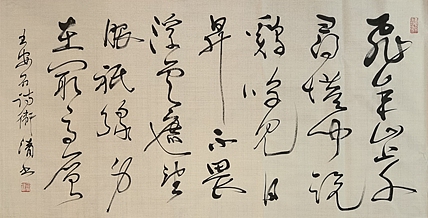 飛来山上千
尋塔聞説
鷄鳴見日
昇不畏
浮雲遮望
眼祇緣身
在最高層
王安石詩